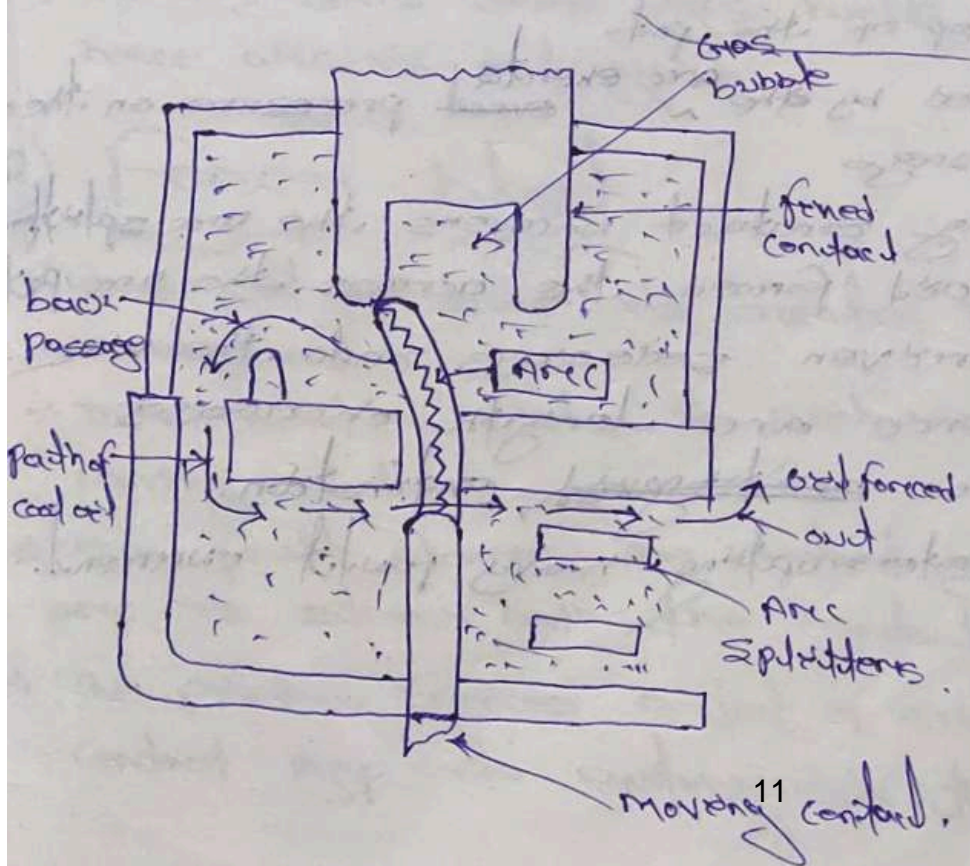 Gas
bubble
fixed
contact
back
passage
Arc
path of
cool oil
oil forced
out
Arc
Splitters.
moving contact.
11